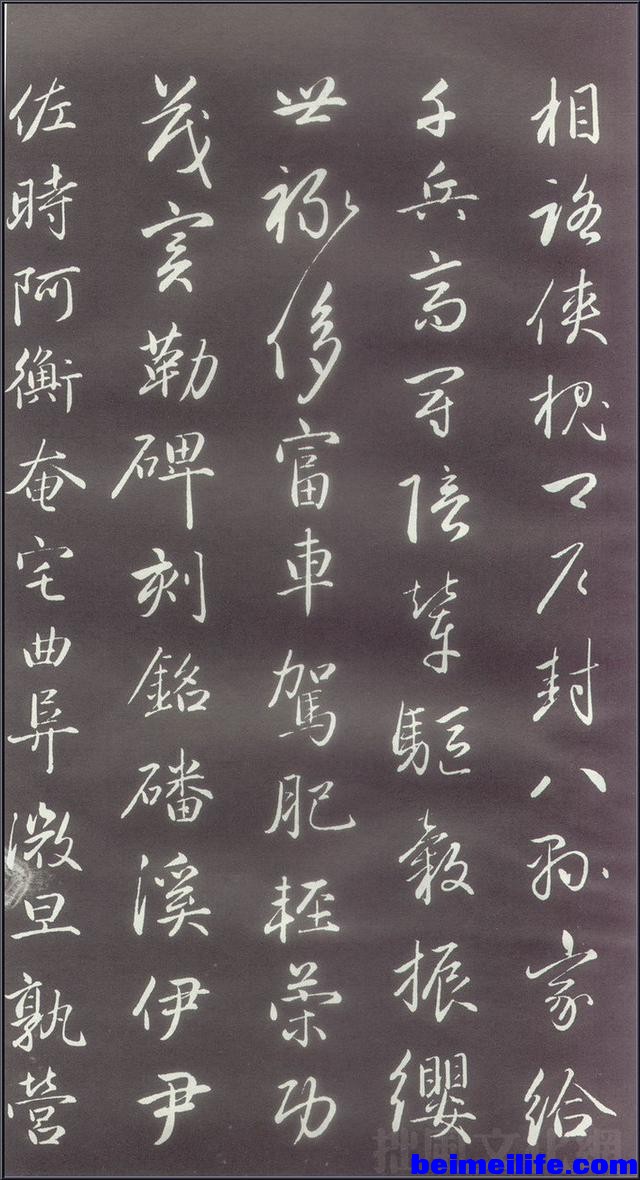 相路俠槐卿戶封八縣家給
千兵高冠陪輦驅轂振纓
世祿侈富車駕肥輕策功
茂實勒碑刻銘磻溪伊尹
佐時阿衡奄宅曲阜微旦孰營
拙風文化網
beimeilife.com